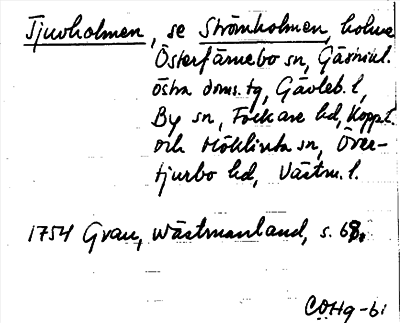 Tjuvholmen, se Strömholmen, holme
Österfärnebo sn, Gästrikl.
östra doms.tg, Gävleb. l,
By sn, Folkare hd, Kopp.l.
och Möklinta sn, Över-
tjurbo hd, Västm. l.
1754 Grau, Wästmanland, s. 68.